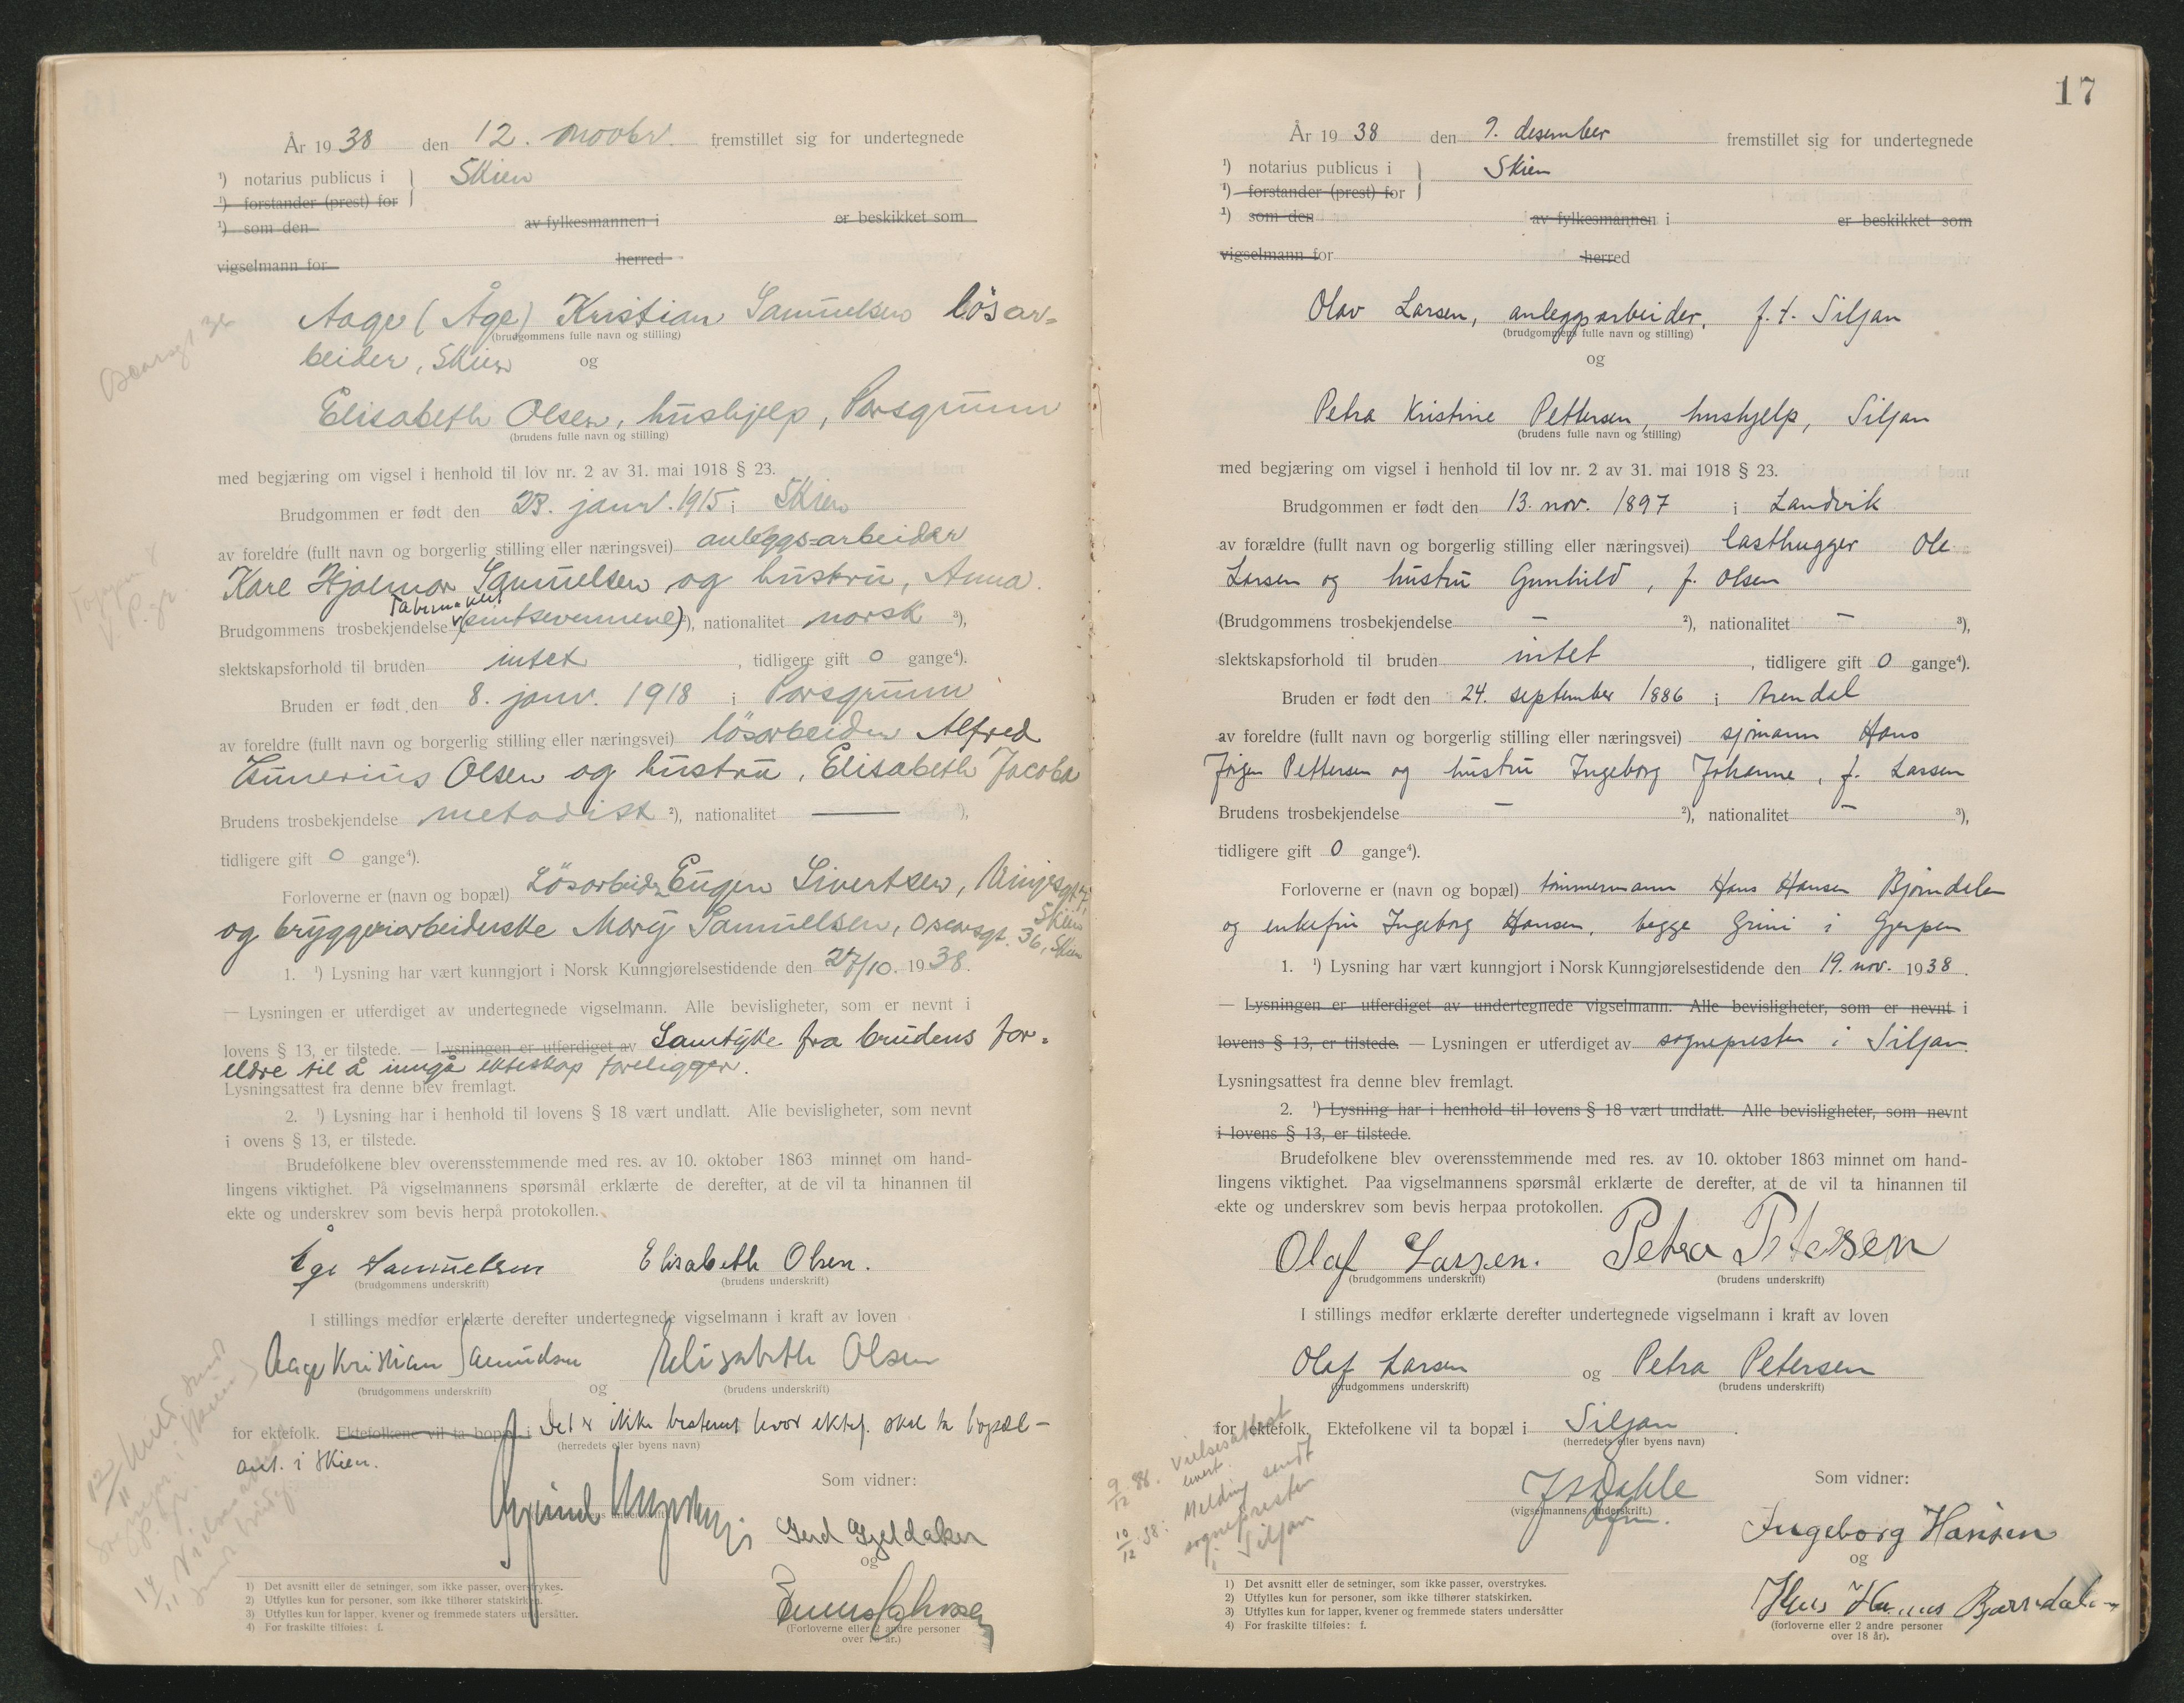 År 1938 den 12. novbr. fremstillet sig for undertegnede
¹) notarius publicus i } Skien
¹) forstander (prest) for
¹) som den av fylkesmannen i er beskikket som
vigselmann for herred
Aage (Åge) Kristian Samuelsen lösar=
(brudgommens fulle navn og stilling)
beider, Skien og
Elisabeth Olsen, hushjelp, Porsgrunn
(brudens fulle navn og stilling)
med begjæring om vigsel i henhold til lov nr. 2 av 31. mai 1918 § 23.
Brudgommen er født den 23. janr. 1915 i Skien
av foreldre (fullt navn og borgerlig stilling eller næringsvei) anleggs=arbeider
Karl Hjalmar Samuelsen og hustru, Anna.
Brudgommens trosbekjendelse ²), nationalitet norsk ³),
slektskapsforhold til bruden intet, tidligere gift 0 gange⁴).
Bruden er født den 8. janr. 1918 i Porsgrunn
av foreldre (fullt navn og borgerlig stilling eller næringsvei) lösarbeider Alfred
Olsen og hustru, Elisabeth Jacoba
Brudens trosbekjendelse metodist ²), nationalitet — ³),
tidligere gift 0 gange⁴).
Forloverne er (navn og bopæl) Lösarbeider Eugen Sivertsen,
Skien
og bryggeriarbeiderske Mary Samuelsen, Oscarsgt. 36, Skien
1. ¹) Lysning har vært kunngjort i Norsk Kunngjørelsestidende den 27/10. 1938.
— Lysningen er utferdiget av undertegnede vigselmann. Alle bevisligheter, som er nevnt i
lovens § 13, er tilstede. — Lysningen er utferdiget av Samtykke fra brudens for=
eldre til å inngå ekteskap foreligger.
Lysningsattest fra denne blev fremlagt.
2. ¹) Lysning har i henhold til lovens § 18 vært undlatt. Alle bevisligheter, som nevnt
i ovens § 13, er tilstede.
Brudefolkene blev overensstemmende med res. av 10. oktober 1863 minnet om hand-
lingens viktighet. På vigselmannens spørsmål erklærte de derefter, at de vil ta hinannen til
ekte og underskrev som bevis herpå protokollen.
Åge Samuelsen Elisabeth Olsen.
(brudgommens underskrift) (brudens underskrift)
I stillings medfør erklærte derefter undertegnede vigselmann i kraft av loven
Aage Kristian Samuelsen Elisabeth Olsen
(brudgommens underskrift) og (brudens underskrift)
for ektefolk. Ektefolkene vil ta bopæl i Det er ikke bestemt hvor ektef. skal ta bopæl –
(herredets eller byens navn)
ant. i Skien.
Som vidner:
Gerd Gjeldaker
og
(Forloverne eller 2 andre personer
over 18 år.)
1) Det avsnitt eller de setninger, som ikke passer, overstrykes.
2) Utfylles kun for personer, som ikke tilhører statskirken.
3) Utfylles kun for lapper, kvener og fremmede staters undersåtter.
4) For fraskilte tilføies: f.
17
År 1938 den 9. desember fremstillet sig for undertegnede
¹) notarius publicus i } Skien
¹) forstander (prest) for
¹) som den av fylkesmannen i er beskikket som
vigselmann for herred
Olav Larsen, anleggsarbeider, f. t. Siljan
(brudgommens fulle navn og stilling)
og
Petra Kristine Pettersen, hushjelp, Siljan
(brudens fulle navn og stilling)
med begjæring om vigsel i henhold til lov nr. 2 av 31. mai 1918 § 23.
Brudgommen er født den 13. nov. 1897 i Landvik
av forældre (fullt navn og borgerlig stilling eller næringsvei) lasthugger Ole
Larsen og hustru Gunhild, f. Olsen
(Brudgommens trosbekjendelse — ²), nationalitet — ³),
slektskapsforhold til bruden intet, tidligere gift 0 gange⁴).
Bruden er født den 24. september 1886 i Arendal
av foreldre (fullt navn og borgerlig stilling eller næringsvei) sjømann Hans
Jörgen Pettersen og hustru Ingeborg Johanne, f. Larsen
Brudens trosbekjendelse — ²), nationalitet — ³),
tidligere gift 0 gange⁴).
Forloverne er (navn og bopæl) tømmermann Hans Hansen Bjørndalen
og enkefru Ingeborg Hansen, begge Grini i Gjerpen
1. ¹) Lysning har vært kunngjort i Norsk Kunngjørelsestidende den 19. nov. 1938.
— Lysningen er utferdiget av undertegnede vigselmann. Alle bevisligheter, som er nevnt i
lovens § 13, er tilstede. — Lysningen er utferdiget av sognepresten i Siljan.
Lysningsattest fra denne blev fremlagt.
2. ¹) Lysning har i henhold til lovens § 18 vært undlatt. Alle bevisligheter, som nevnt
i lovens § 13, er tilstede.
Brudefolkene blev overensstemmende med res. av 10. oktober 1863 minnet om hand-
lingens viktighet. Paa vigselmannens spørsmål erklærte de derefter, at de vil ta hinannen til
ekte og underskrev som bevis herpaa protokollen.
Olaf Larsen. Petra Petersen
(brudgommens underskrift) (brudens underskrift)
I stillings medfør erklærte derefter undertegnede vigselmann i kraft av loven
Olaf Larsen og Petra Petersen
(brudgommens underskrift) (brudens underskrift)
for ektefolk. Ektefolkene vil ta bopæl i Siljan.
(herredets eller byens navn)
9/12 38. Vielsesattest
levert.
10/12 38: Melding sendt
sognepresten
i Siljan
(vigselmannens underskrift.)
Som vidner:
Ingeborg Hansen
og
Hans Hansen Bjørndalen
(forloverne eller 2 andre personer
over 18 år).
1) Det avsnitt eller de setninger, som ikke passer, overstrykes.
2) Utfylles kun for personer, som ikke tilhører statskirken.
3) Utfylles kun for lapper, kvener og fremmede staters undersåtter
4) For fraskilte tilføies: f.